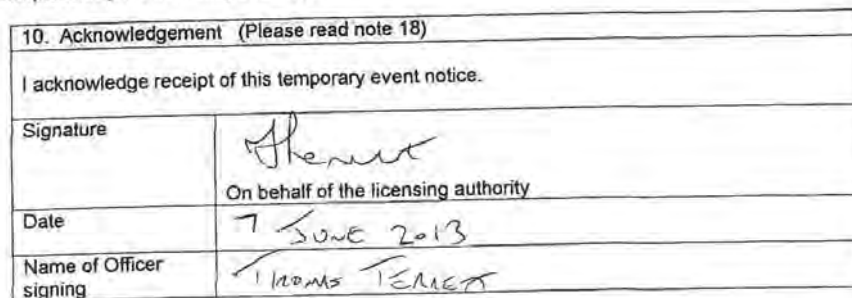 10. Acknowledgement (Please read note 18)
I acknowledge receipt of this temporary event notice.
Signature
On behalf of the licensing authority
Date
7 JUNE 2013
Name of Officer
signing